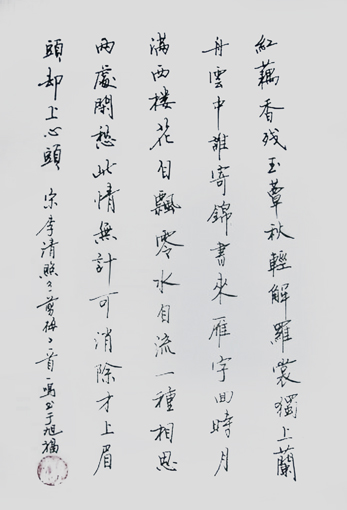 紅藕香殘玉簟秋輕解羅裳獨上蘭
舟雲中誰寄錦書來雁字回時月
滿西樓花自飄零水自流一種相思
兩處閑愁此情無計可消除才上眉
頭却上心頭 宋李清照剪梅一首